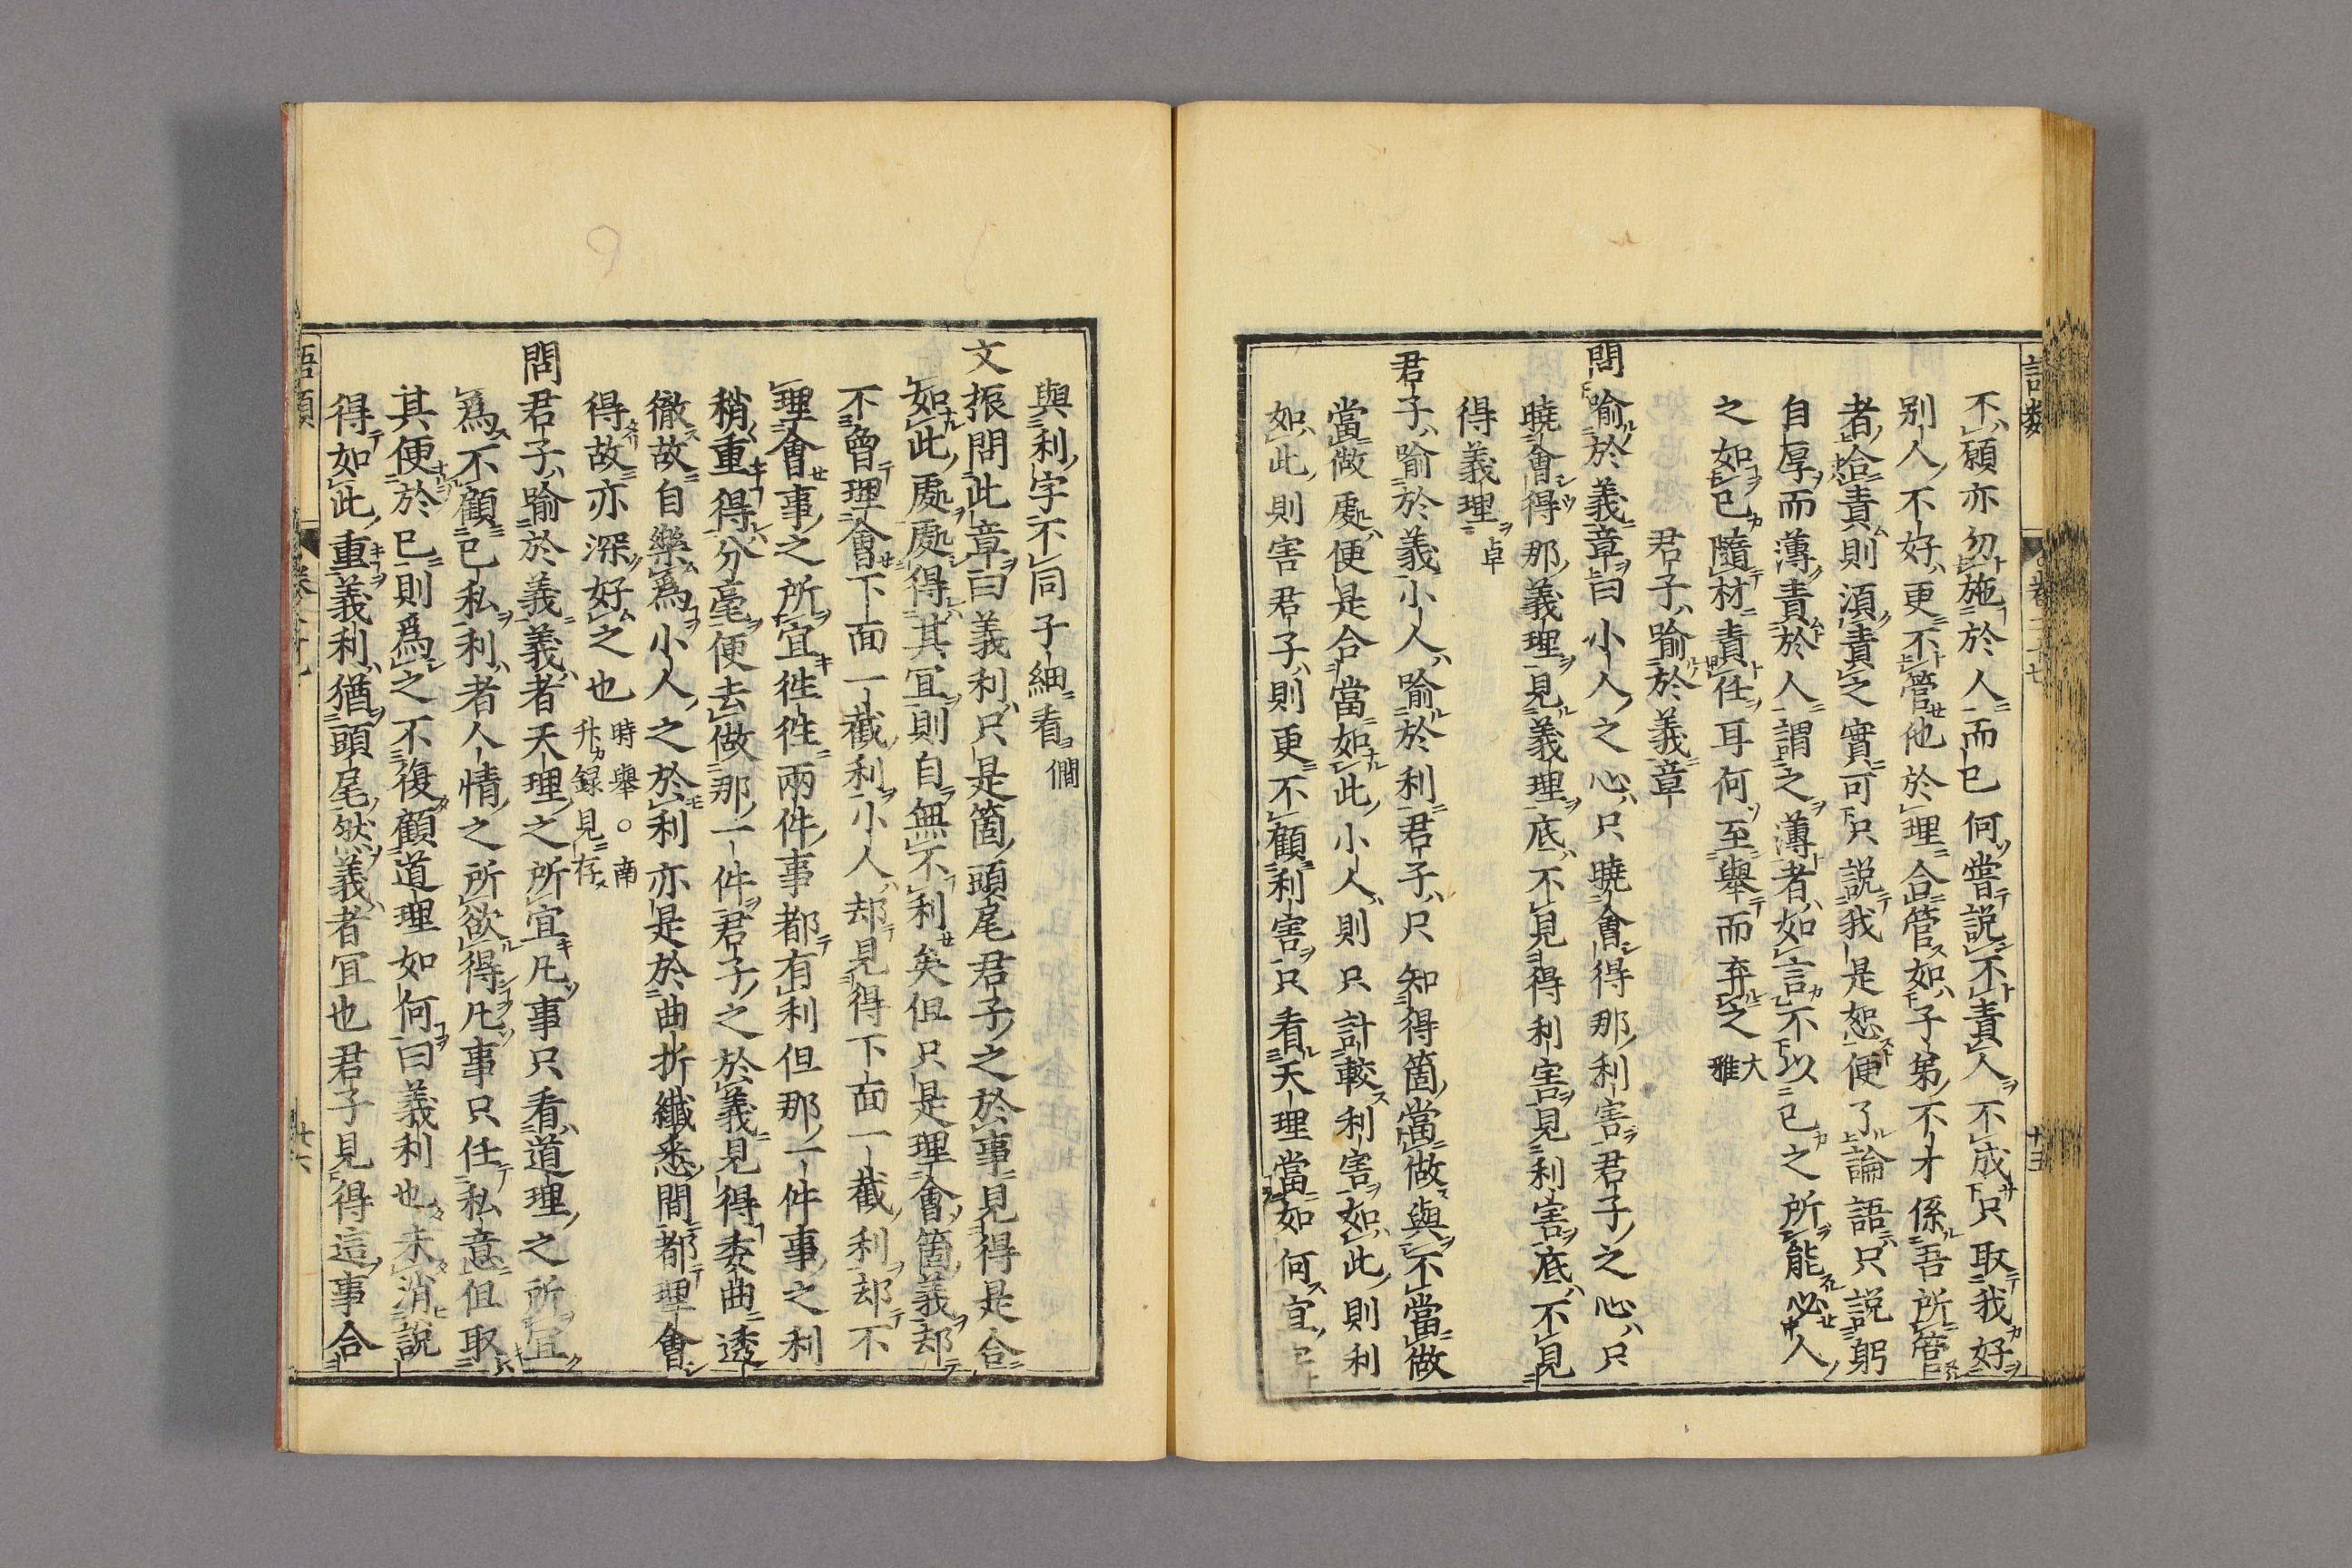 不願亦勿施於人而已何嘗説不責人不成只取我好
別人不好更不管他於理合管如子弟不才係吾所管
者合責則須責之實可只説我是恕便了論語只説躬
自厚而薄責於人謂之薄者如言不以已之所能必人
之如已隨材責任耳何至舉而弃之 大雅
君子喻於義章
問喻於義章曰小人之心只曉會得那利害君子之心只
曉會得那義理見義理底不見得利害見利害底不見
得義理 卓
君子喻於義小人喻於利君子只知得箇當做與不當做
當做處便是合當如此小人則只計較利害如此則利
如此則害君子則更不顧利害只看天理當如何宜
與利字不同子細看 僩
文振問此章曰義利只是箇頭尾君子之於事見得是合
如此處處得其宜則自無不利矣但只是理會箇義却
不曾理會下面一截利小人却見得下面一截利却不
理會事之所宜徃徃兩件事都有利但那一件事之利
稍重得分毫便去做那一件君子之於義見得委曲透
徹故自樂爲小人之於利亦是於曲折纖悉間都理會
得故亦深好之也 時舉○南升録見存
問君子喻於義義者天理之所宜凡事只看道理之所宜
爲不顧已私利者人情之所欲得凡事只任私意但取
其便於已則爲之不復顧道理如何曰義利也未消説
得如此重義利猶頭尾然義者宜也君子見得這事合